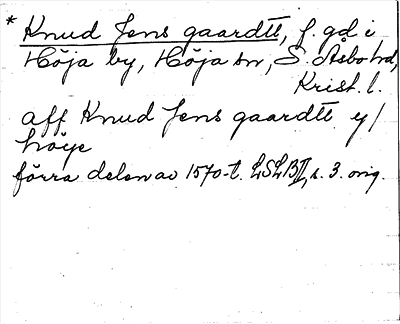 * Knud Jens gaardtt, f. gd i
Höja by, Höja sn, S. Åsbo hd,
Krist. l.
aff Knud Jens gaardtt y/
höye
förra delen av 1570-t. LSLB II, s. 3. orig.